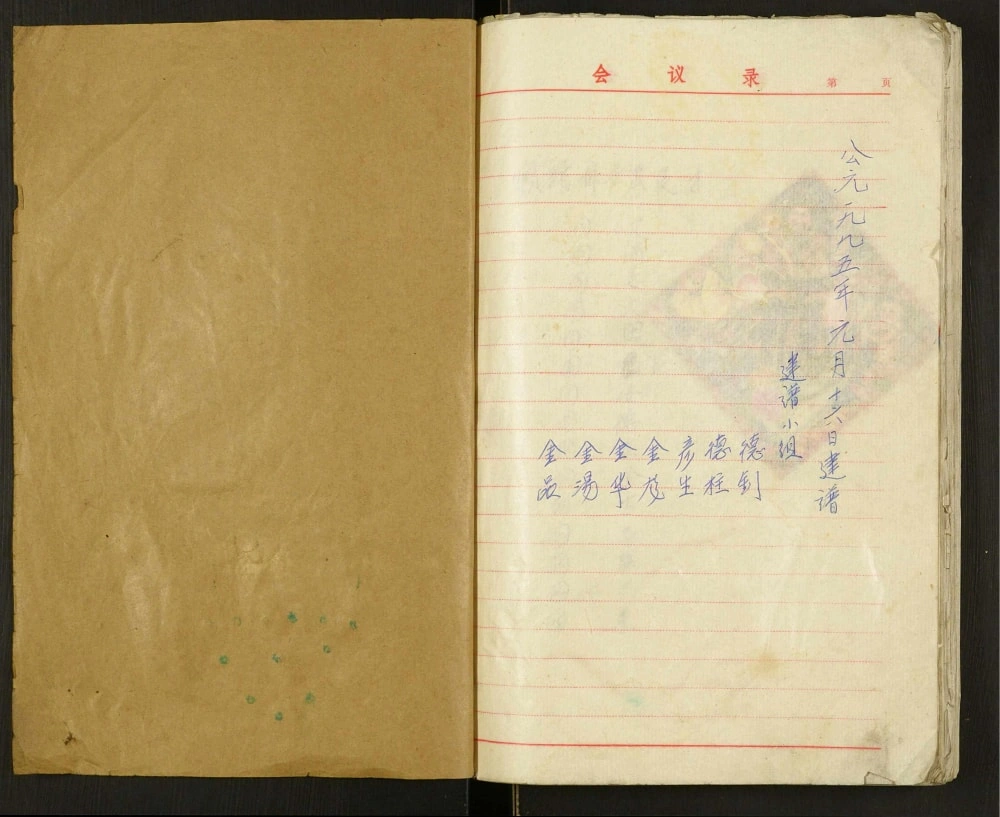 会议录
第 页
公元一九九五年元月十六日建谱
建谱小组
德钊
德柱
彦生
金茂
金华
金汤
金品